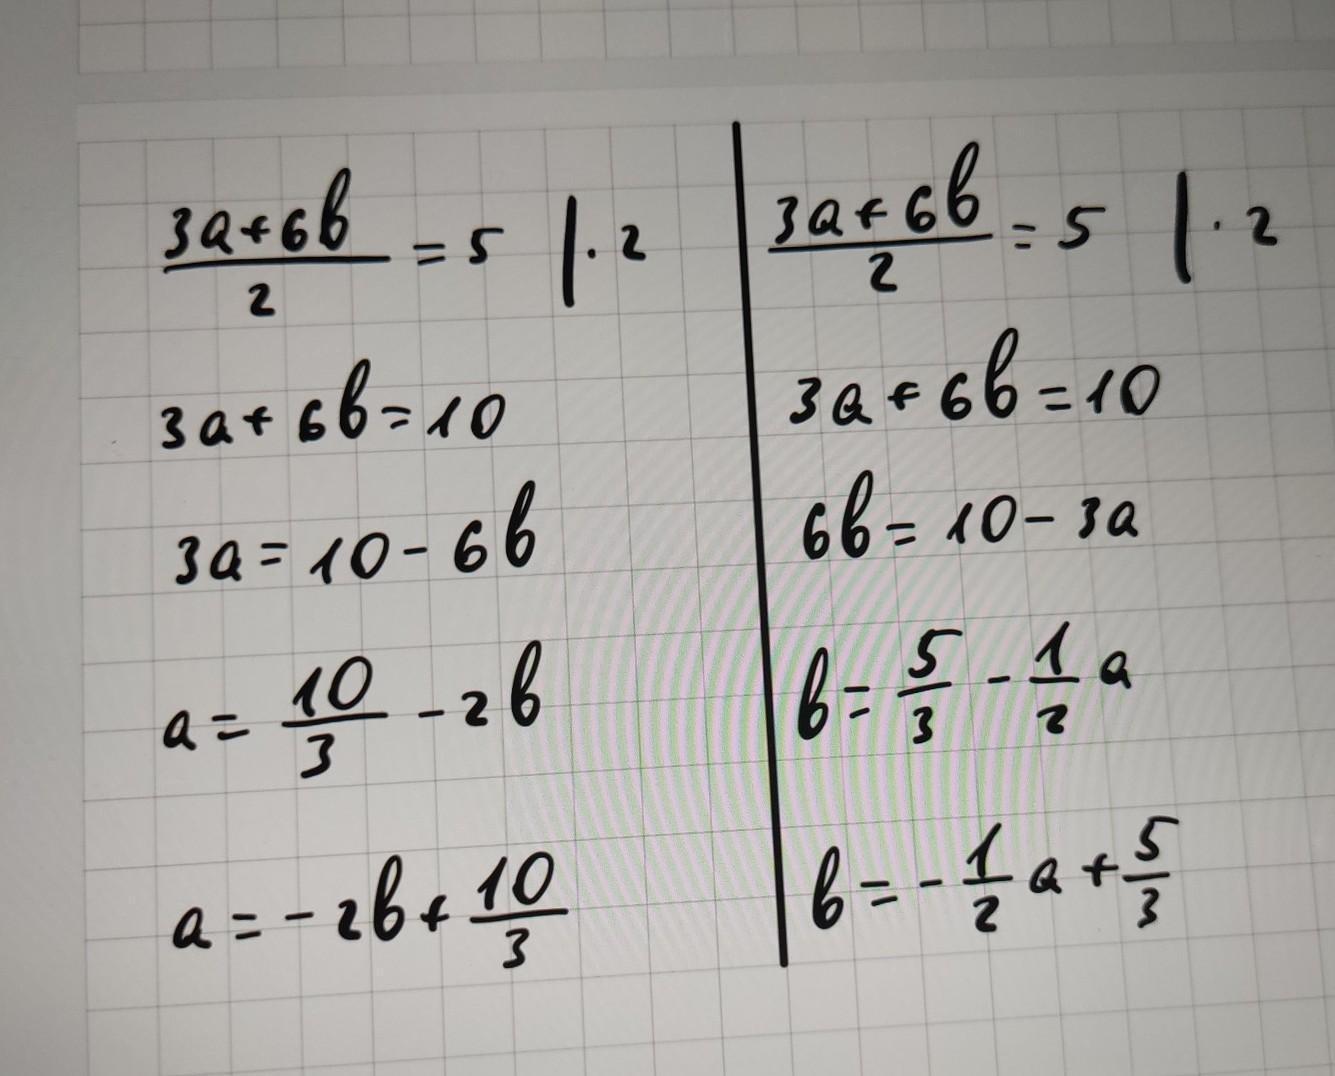 (3a+6b)/2 = 5 |·2
3a+6b=10
3a=10-6b
a=10/3-2b
a=-2b+10/3
(3a+6b)/2=5 |·2
3a+6b=10
6b=10-3a
b=5/3-1/2a
b=-1/2a+5/3